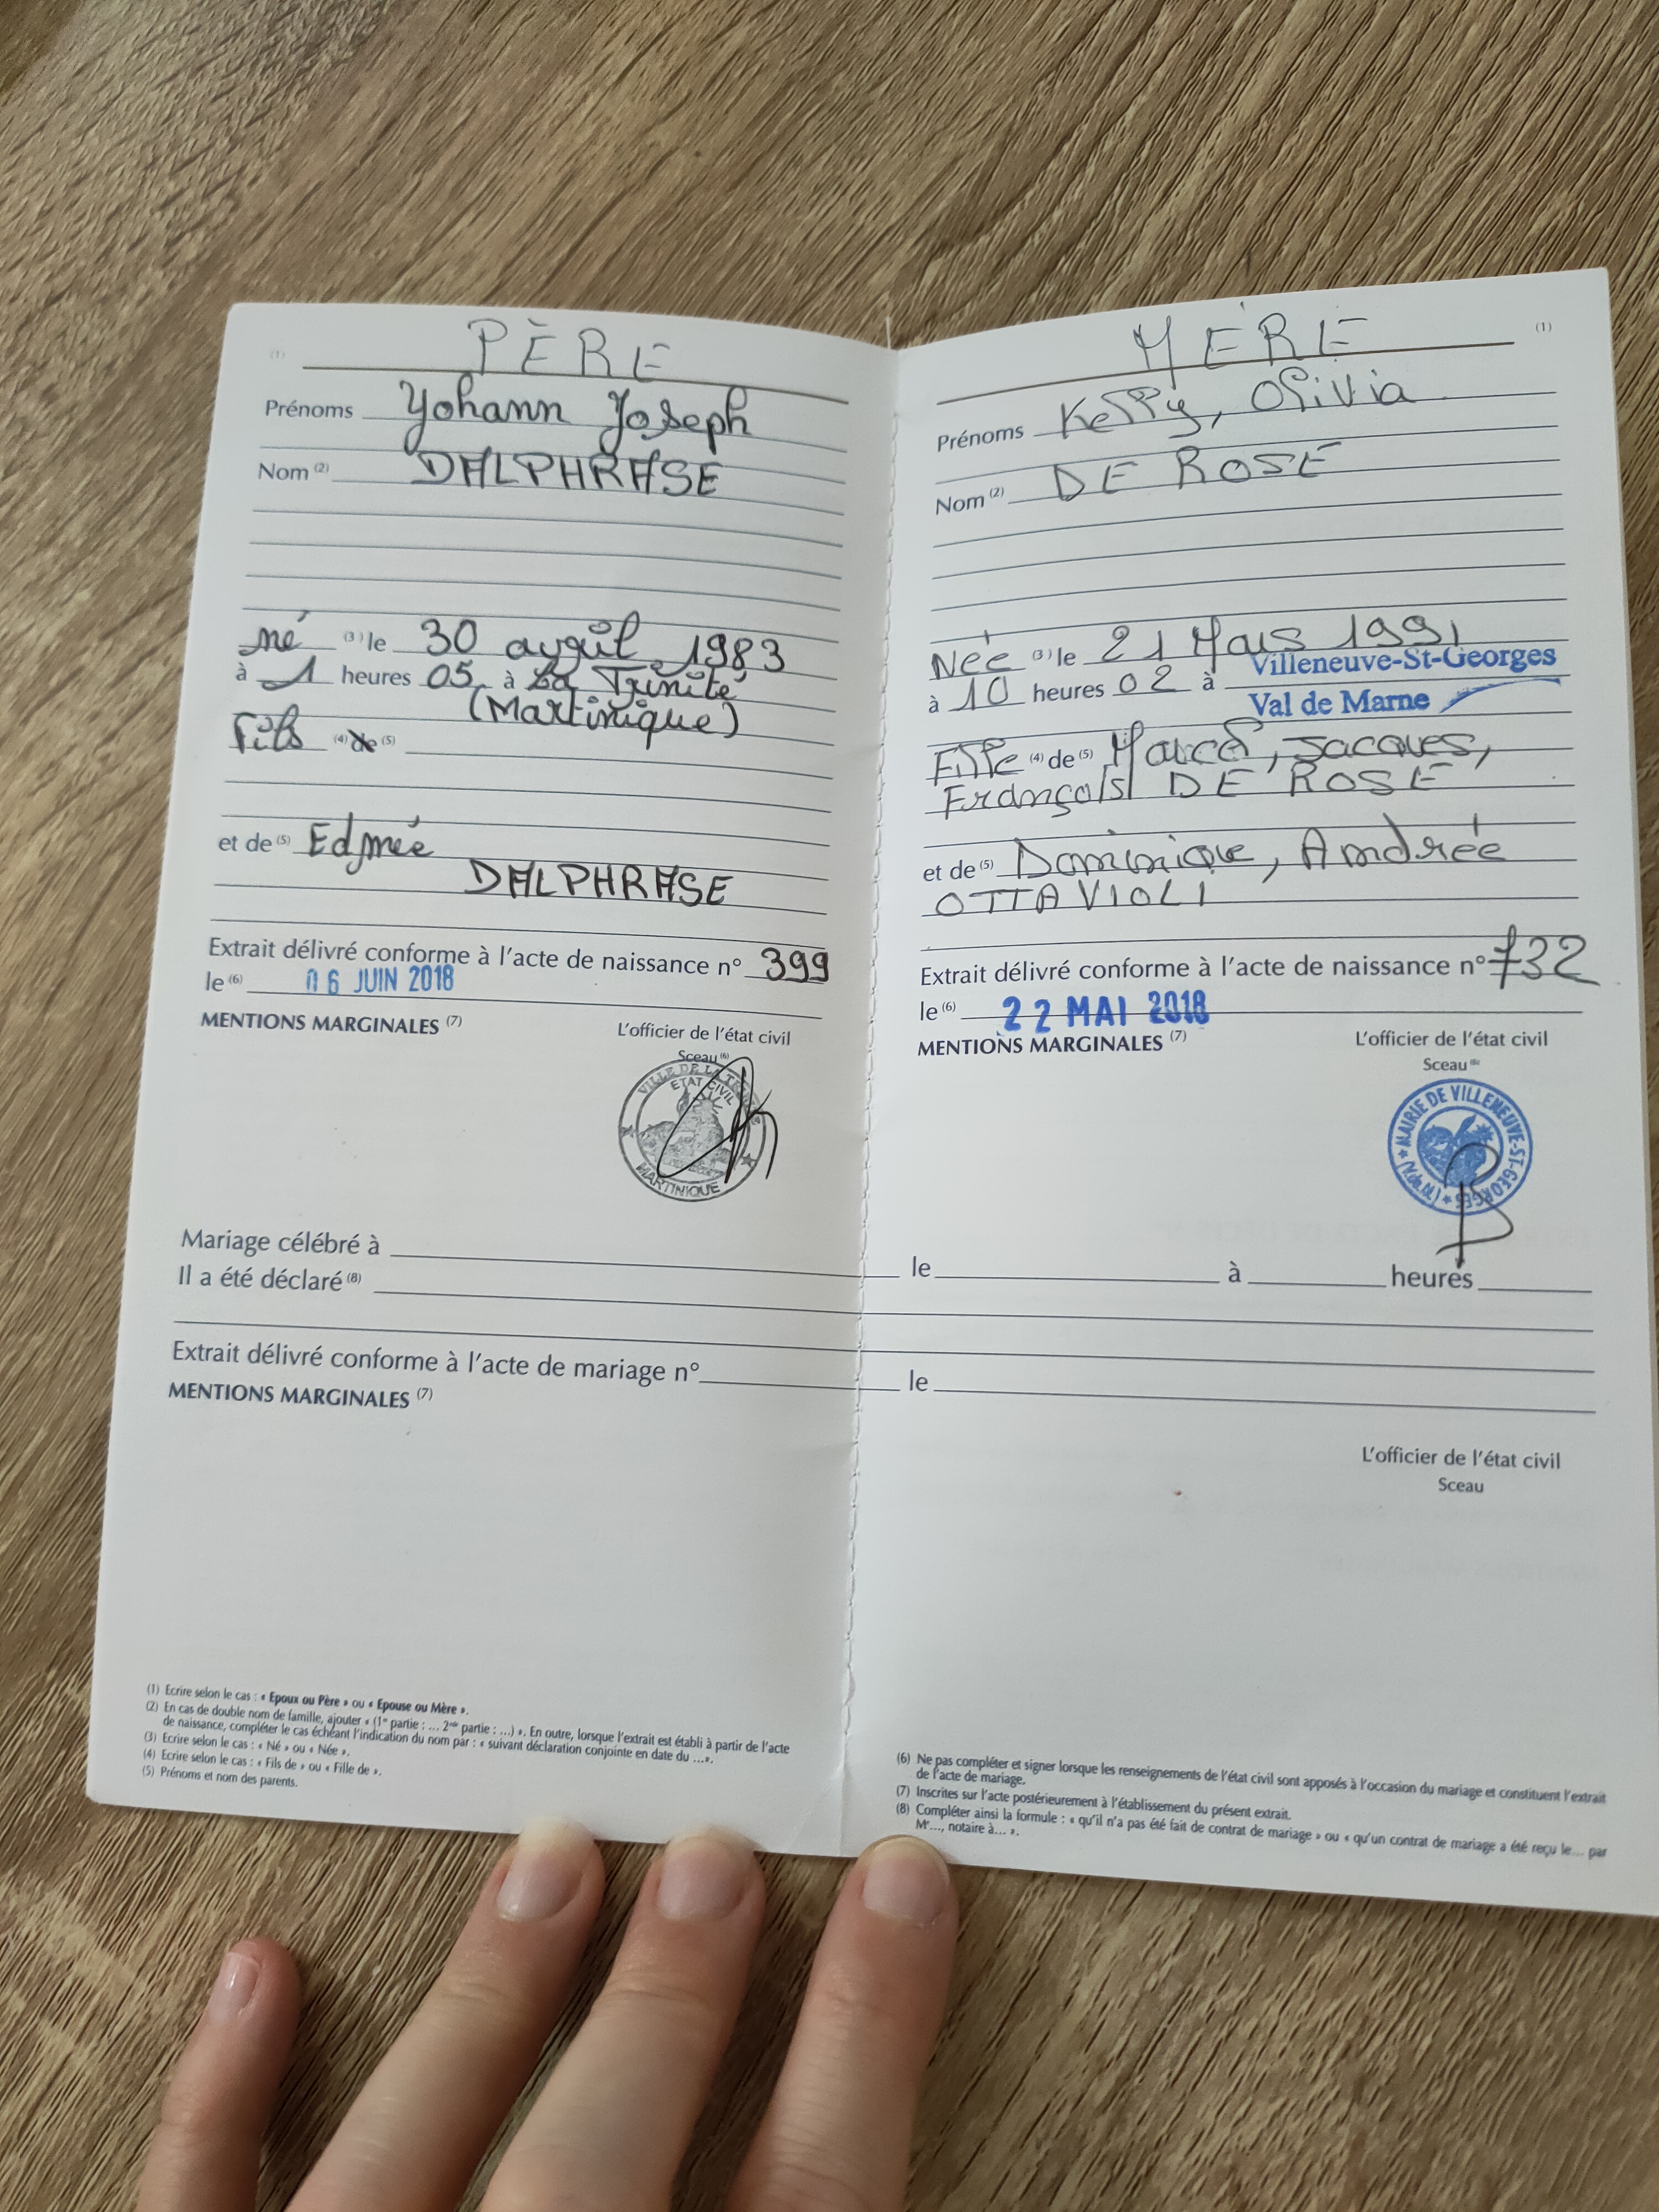 (1) PÈRE
Prénoms Yohann Joseph
Nom (2) DALPHRASE
né (3) le 30 avril 1983
à 1 heures 05 à La Trinité
(Martinique)
Fils (4) de (5)
et de (5) Edmée
DALPHRASE
Extrait délivré conforme à l'acte de naissance n° 399
le (6) 06 JUIN 2018
MENTIONS MARGINALES (7)
L'officier de l'état civil
Sceau (6)
VILLE DE LA
ETAT CIVIL
MARTINIQUE
MÈRE (1)
Prénoms Kelly, Olivia
Nom (2) DE ROSE
Née (3) le 21 Mars 1991
à 10 heures 02 à Villeneuve-St-Georges
Val de Marne
Fille (4) de (5) Marcel, Jacques,
François DE ROSE
et de (5) Dominique, Andrée
OTTAVIOLI
Extrait délivré conforme à l'acte de naissance n° 732
le (6) 22 MAI 2018
MENTIONS MARGINALES (7)
L'officier de l'état civil
Sceau (6)
MAIRIE DE VILLENEUVE-ST-GEORGES
Mariage célébré à le à heures
Il a été déclaré (8)
Extrait délivré conforme à l'acte de mariage n° le
MENTIONS MARGINALES (7)
L'officier de l'état civil
Sceau
(1) Ecrire selon le cas : « Epoux ou Père » ou « Epouse ou Mère ».
(2) En cas de double nom de famille, ajouter « (1re partie : ... 2nde partie : ...) ». En outre, lorsque l'extrait est établi à partir de l'acte
de naissance, compléter le cas échéant l'indication du nom par : « suivant déclaration conjointe en date du ...».
(3) Ecrire selon le cas : « Né » ou « Née ».
(4) Ecrire selon le cas : « Fils de » ou « Fille de ».
(5) Prénoms et nom des parents.
(6) Ne pas compléter et signer lorsque les renseignements de l'état civil sont apposés à l'occasion du mariage et constituent l'extrait
de l'acte de mariage.
(7) Inscrites sur l'acte postérieurement à l'établissement du présent extrait.
(8) Compléter ainsi la formule : « qu'il n'a pas été fait de contrat de mariage » ou « qu'un contrat de mariage a été reçu le... par
Me..., notaire à... ».